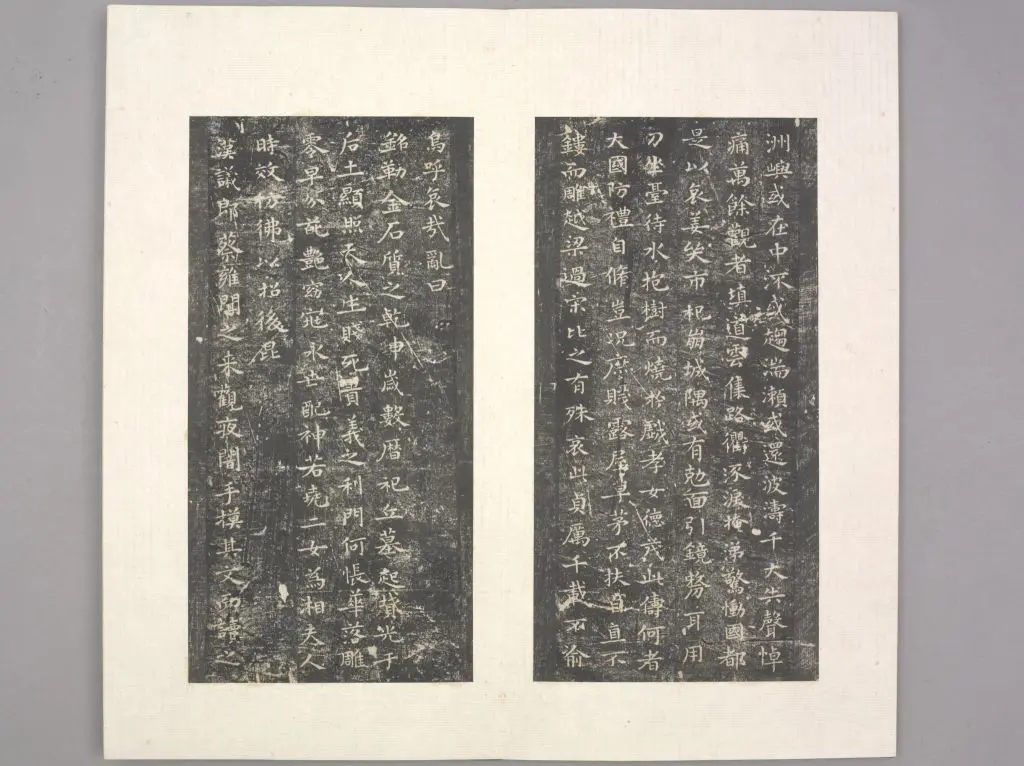 洲嶼或在中流或趨湍瀨或還波濤千夫失聲悼
痛萬餘觀者填道雲集路衢泳淚掩涕驚慟國都
是以哀姜哭市杞崩城隅或有剋面引鏡剺耳用
刀坐臺待水抱樹而燒於戲孝女德茂此儔何者
大國防禮自脩豈況庶賤露屋草茅不扶自直不
鏤而雕越梁過宋比之有殊哀此貞厲千載不渝
嗚呼哀哉亂曰
銘勒金石質之乾坤歲數曆祀丘墓起墳光于
后土顯照天人生賤死貴義之利門何悵華落雕
零早分葩艷窈窕永世配神若堯二女為相夫人
時效髣彿以招後昆
漢議郎蔡雍聞之来觀夜闇手摸其文而讀之